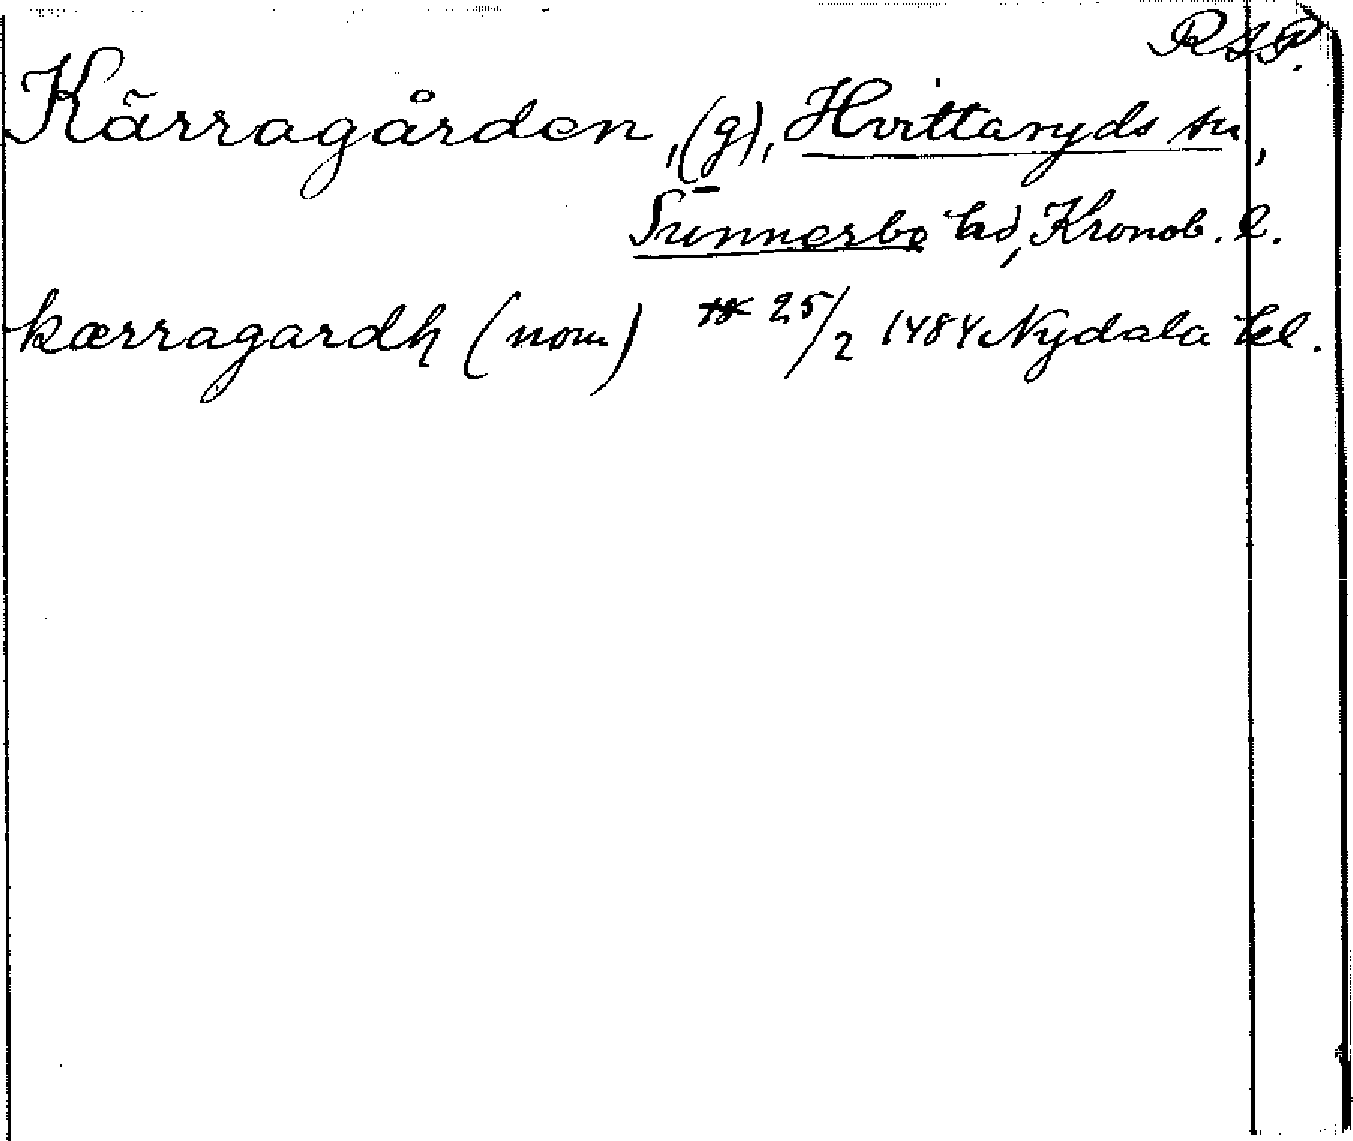 RAP.
Kärragården, (g), Hvittaryds sn,
Sunnerbo hd, Kronob. l.
kærragardh (nom) 25/2 1484 Nydala kl.